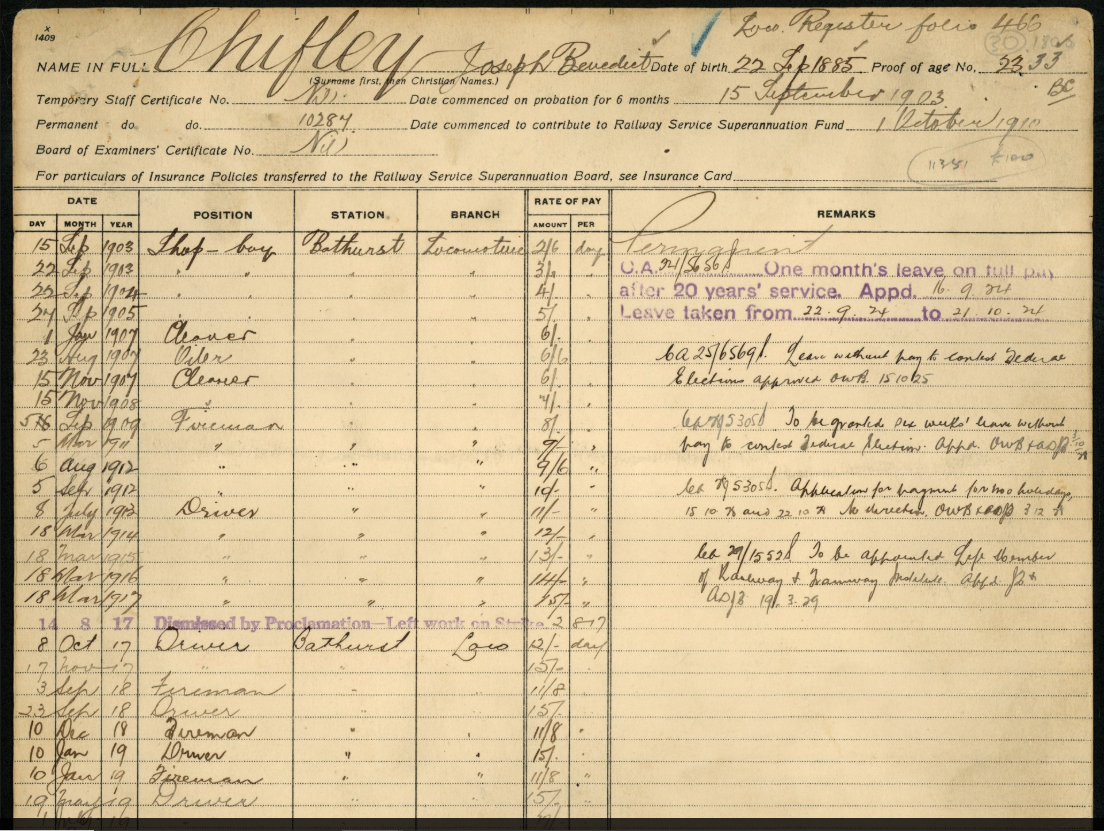 X
1409
Loco. Register folio 466
NAME IN FULL Chifley Joseph Benedict Date of birth 22 Sep 1885 Proof of age No. 2333
(Surname first, then Christian Names.)
BC
Temporary Staff Certificate No. Nil. Date commenced on probation for 6 months 15 September 1903
Permanent do. do. 10284 Date commenced to contribute to Railway Service Superannuation Fund 1 October 1910
Board of Examiners' Certificate No. Nil
11381 £100
For particulars of Insurance Policies transferred to the Railway Service Superannuation Board, see Insurance Card
DATE POSITION STATION BRANCH RATE OF PAY REMARKS
DAY MONTH YEAR AMOUNT PER
15 Sep 1903 Shop-boy Bathurst Locomotive 2/6 day Permanent
22 Sep 1903 " " " " 3/- " C.A. 24/5656 One month's leave on full pay
22 Sep 1904 " " " " 4/- " after 20 years' service. Appd. 16.9.24
24 Sep 1905 " " " " 5/- " Leave taken from 22.9.24 to 21.10.24
1 Jan 1907 Cleaner " " 6/- "
23 Aug 1907 Oiler " " 6/6 " CA 25/6569 Leave without pay to contest Federal
15 Nov 1907 Cleaner " " 6/- " Elections approved OWB. 15 10 25
15 Nov 1908 " " " 7/- "
5 Sep 1909 Fireman " " 8/- " To be granted six weeks' leave without
5 Mar 1911 " " " 9/- " pay to contest Federal Election. Appd. OWB
6 Aug 1912 " " " 9/6 "
5 Sep 1912 " " " 10/- " Application for payment for two holidays,
8 July 1913 Driver " " 11/- " 15 10 and 22 10 No direction. OWB 3 12
18 Mar 1914 " " " 12/- "
18 Mar 1915 " " " 13/- " CA 29/1552 To be appointed Life Member
18 Mar 1916 " " " 14/- " of Railway & Tramway Institute. Appd.
18 Mar 1917 " " " 15/- " 19.3.29
14 8 17 Dismissed by Proclamation—Left work on Strike. 2 8 17
8 Oct 17 Driver Bathurst Loco 12/- day
17 Nov 17 " " " 15/- "
3 Sep 18 Fireman " " 11/8 "
23 Sep 18 Driver " " 15/- "
10 Dec 18 Fireman " " 11/8 "
10 Jan 19 Driver " " 15/- "
10 Jan 19 Fireman " " 11/8 "
19 May 19 Driver " " 15/- "